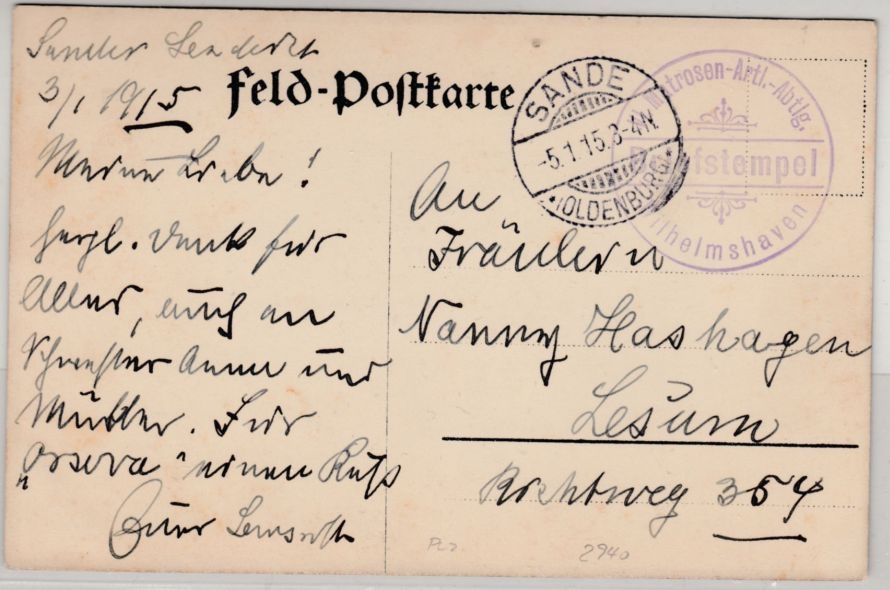 Sander
3/1 1915
Feld-Postkarte
SANDE
-5.1.15.3-4N.
*(OLDENBURG)*
Matrosen-Artl.-Abtlg.
Briefstempel
Wilhelmshaven
Meine Liebe!
Herzl. Dank für
Alles, auch an
Schwester Anna und
Mutter. Für
einen Kuß
Euer
An
Fräulein
Nanny Hashagen
Lesum
Richtweg 354
2940